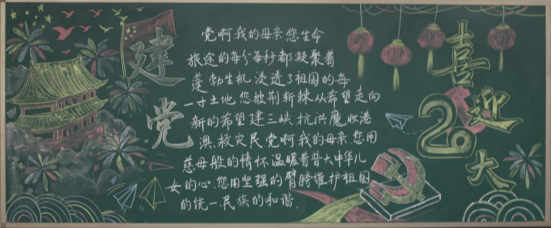 建党
党啊我的母亲您生命
旅途的每分每秒都凝聚着
蓬勃生机浸透了祖国的每
一寸土地您披荆斩棘从希望走向
新的希望建三峡抗洪魔收港
澳救灾民党啊我的母亲您用
慈母般的情怀温暖着普大中华儿
女的心.您用坚强的臂膀维护祖国
的统一.民族的和谐.
喜迎
20
大